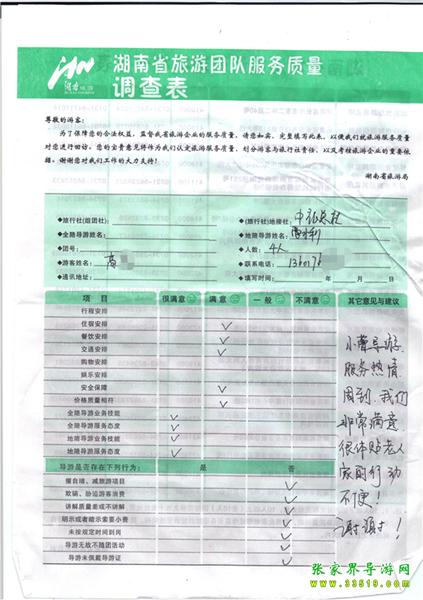 湖南省旅游团队服务质量
调查表
尊敬的游客：
为了保障您的合法权益，监督我省旅游企业的服务质量，请您如实、完整填写此表，以便我们就旅游服务质量
对您进行回访。您的宝贵意见将作为我们认定旅游服务质量、划分游客与旅行社责任、以及考核旅游企业的重要依
据。谢谢您对我们工作的大力支持！
湖南省旅游局
◆旅行社(组团社)： ◆(旅行社)地接社：
◆全陪导游姓名： ◆地陪导游姓名：
◆团号： ◆人数：4人
◆游客姓名： ◆联系电话：
◆通讯地址： ◆填写时间： 年 月 日
项 目 很满意 满意 一般 不满意 其它意见与建议
行程安排
住宿安排 ✓
餐饮安排 ✓
交通安排 ✓
购物安排
娱乐安排
安全保障 ✓
价格质量相符 ✓
全陪导游业务技能 ✓
全陪导游服务态度 ✓
地陪导游业务技能 ✓
地陪导游服务态度 ✓
导游是否存在下列行为： 是 否
擅自增、减旅游项目 ✓
欺骗、胁迫游客消费 ✓
讲解质量差或不讲解 ✓
明示或者暗示索要小费 ✓
未按规定时间到岗 ✓
导游无故不随团活动 ✓
导游未佩戴导游证 ✓
小曹导游
服务热情
周到.我们
非常满意
很体贴老人
家因行动
不便！
谢谢！
张家界导游网
www.33519.com